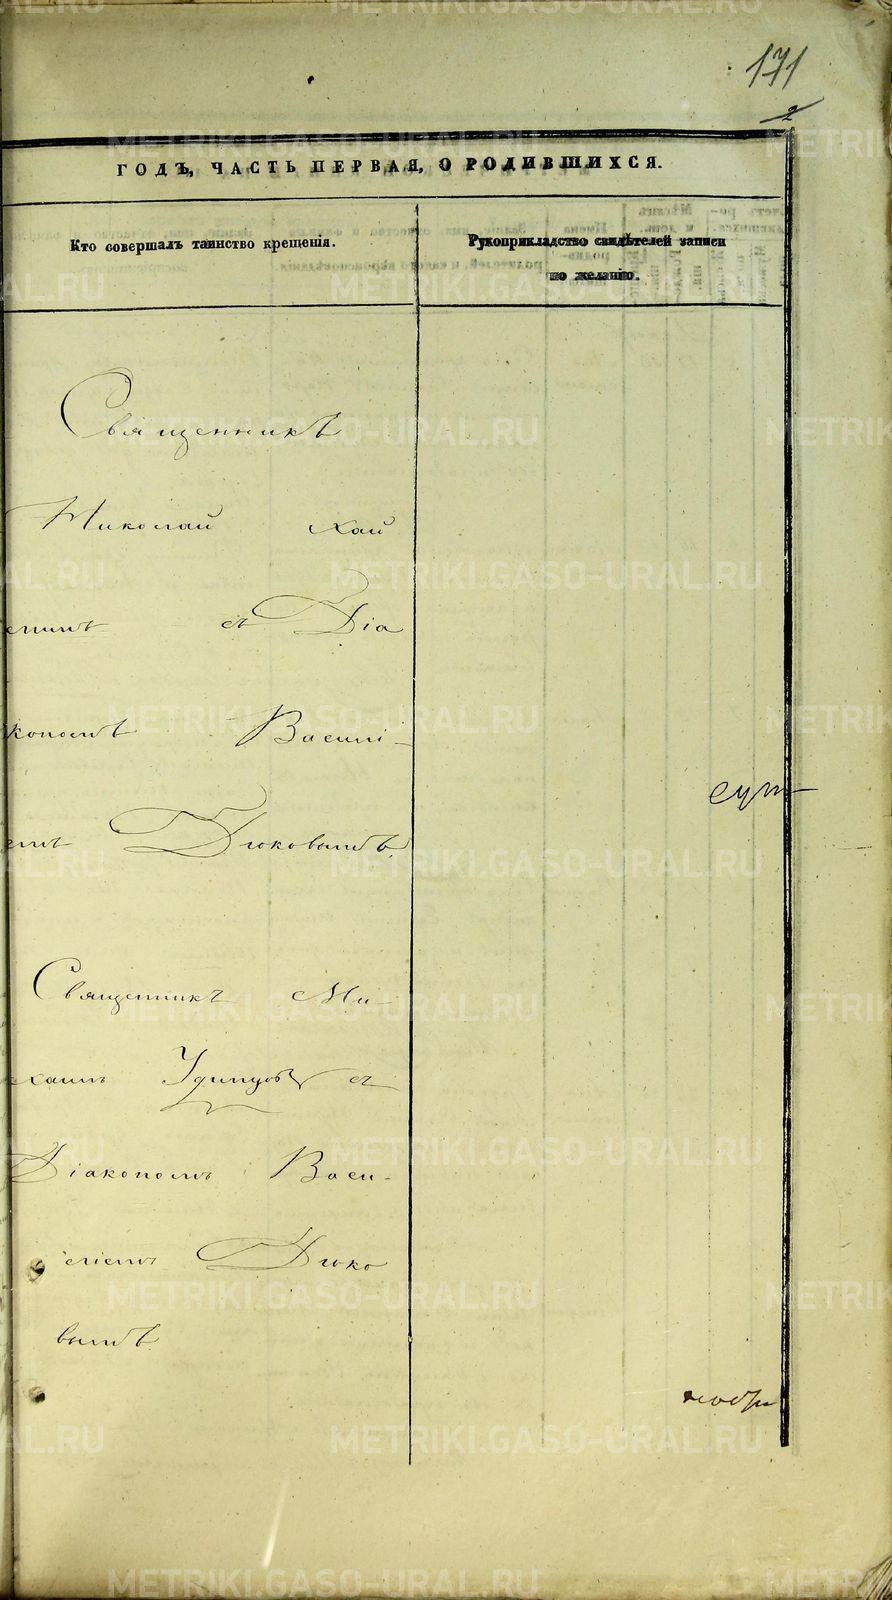 171
2
ГОДЪ, ЧАСТЬ ПЕРВАЯ, О РОДИВШИХСЯ.
Кто совершалъ таинство крещенія.
Рукоприкладство свидѣтелей записи
по желанію.
Священникъ
Николай Хай
с Діа
кономъ Василі-
емъ Дюковымъ.
Священникъ Ми-
хаилъ Удинцовъ съ
Діакономъ Васи-
ліемъ Дюко
вымъ
METRIKI.GASO-URAL.RU